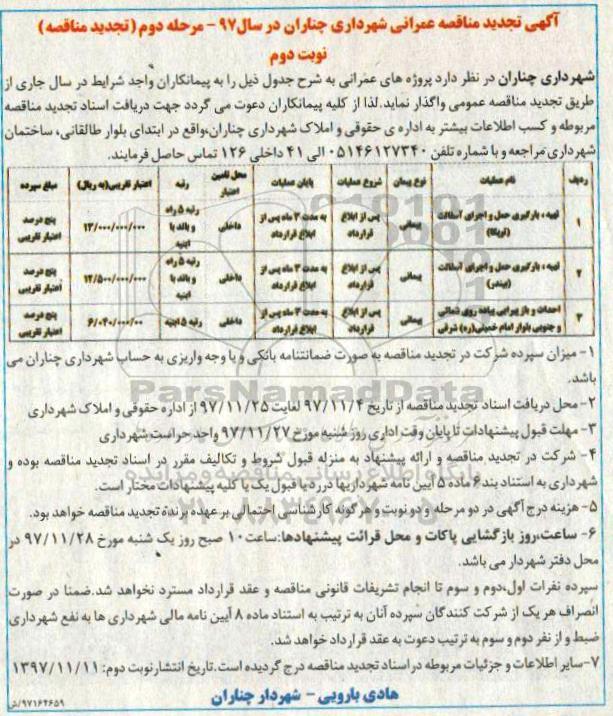 آگهی تجدید مناقصه عمرانی شهرداری چناران در سال ۹۷ - مرحله دوم (تجدید مناقصه)
نوبت دوم
شهرداری چناران در نظر دارد پروژه های عمرانی به شرح جدول ذیل را به پیمانکاران واجد شرایط در سال جاری از
طریق تجدید مناقصه عمومی واگذار نماید.لذا از کلیه پیمانکاران دعوت می گردد جهت دریافت اسناد تجدید مناقصه
مربوطه و کسب اطلاعات بیشتر به اداره ی حقوقی و املاک شهرداری چناران،واقع در ابتدای بلوار طالقانی، ساختمان
شهرداری مراجعه و با شماره تلفن ۰۵۱۴۶۱۲۷۳۴۰ الی ۴۱ داخلی ۱۲۶ تماس حاصل فرمایند.
ردیف نام عملیات نوع پیمان شروع عملیات پایان عملیات محل تامین اعتبار رتبه اعتبار تقریبی(به ریال) مبلغ سپرده
۱ تهیه ، بارگیری حمل و اجرای آسفالت (توپکا) پیمانی پس از ابلاغ قرارداد به مدت ۳ ماه پس از ابلاغ قرارداد داخلی رتبه ۵ راه و باند یا ابنیه ۱۳/۰۰۰/۰۰۰/۰۰۰ پنج درصد اعتبار تقریبی
۲ تهیه ، بارگیری حمل و اجرای آسفالت (بیندر) پیمانی پس از ابلاغ قرارداد به مدت ۳ ماه پس از ابلاغ قرارداد داخلی رتبه ۵ راه و باند یا ابنیه ۱۲/۵۰۰/۰۰۰/۰۰۰ پنج درصد اعتبار تقریبی
۳ احداث و باز پیرایی پیاده روی شمالی و جنوبی بلوار امام خمینی(ره) شرقی پیمانی پس از ابلاغ قرارداد به مدت ۳ ماه پس از ابلاغ قرارداد داخلی رتبه ۵ ابنیه ۶/۰۴۰/۰۰۰/۰۰ پنج درصد اعتبار تقریبی
۱- میزان سپرده شرکت در تجدید مناقصه به صورت ضمانتنامه بانکی و یا وجه واریزی به حساب شهرداری چناران می
باشد.
ParsNamadData
۲- محل دریافت اسناد تجدید مناقصه از تاریخ ۹۷/۱۱/۴ لغایت ۹۷/۱۱/۲۵ از اداره حقوقی و املاک شهرداری
۳- مهلت قبول پیشنهادات تا پایان وقت اداری روز شنبه مورخ ۹۷/۱۱/۲۷ واحد حراست شهرداری
۴- شرکت در تجدید مناقصه و ارائه پیشنهاد به منزله قبول شروط و تکالیف مقرر در اسناد تجدید مناقصه بوده و
شهرداری به استناد بند ۶ ماده ۵ آیین نامه شهرداریها در رد یا قبول یک یا کلیه پیشنهادات مختار است.
۵- هزینه درج آگهی در دو مرحله و دو نوبت و هر گونه کارشناسی احتمالی بر عهده برنده تجدید مناقصه خواهد بود.
۶- ساعت،روز بازگشایی پاکات و محل قرائت پیشنهادها:ساعت ۱۰ صبح روز یک شنبه مورخ ۹۷/۱۱/۲۸ در
محل دفتر شهردار می باشد.
سپرده نفرات اول،دوم و سوم تا انجام تشریفات قانونی مناقصه و عقد قرارداد مسترد نخواهد شد.ضمنا در صورت
انصراف هر یک از شرکت کنندگان سپرده آنان به ترتیب به استناد ماده ۸ آیین نامه مالی شهرداری ها به نفع شهرداری
ضبط و از نفر دوم و سوم به ترتیب دعوت به عقد قرارداد خواهد شد.
۷-سایر اطلاعات و جزئیات مربوطه در اسناد تجدید مناقصه درج گردیده است.تاریخ انتشار نوبت دوم: ۱۳۹۷/۱۱/۱۱
هادی بارویی - شهردار چناران
۹۷۱۶۴۶۵۹/ش